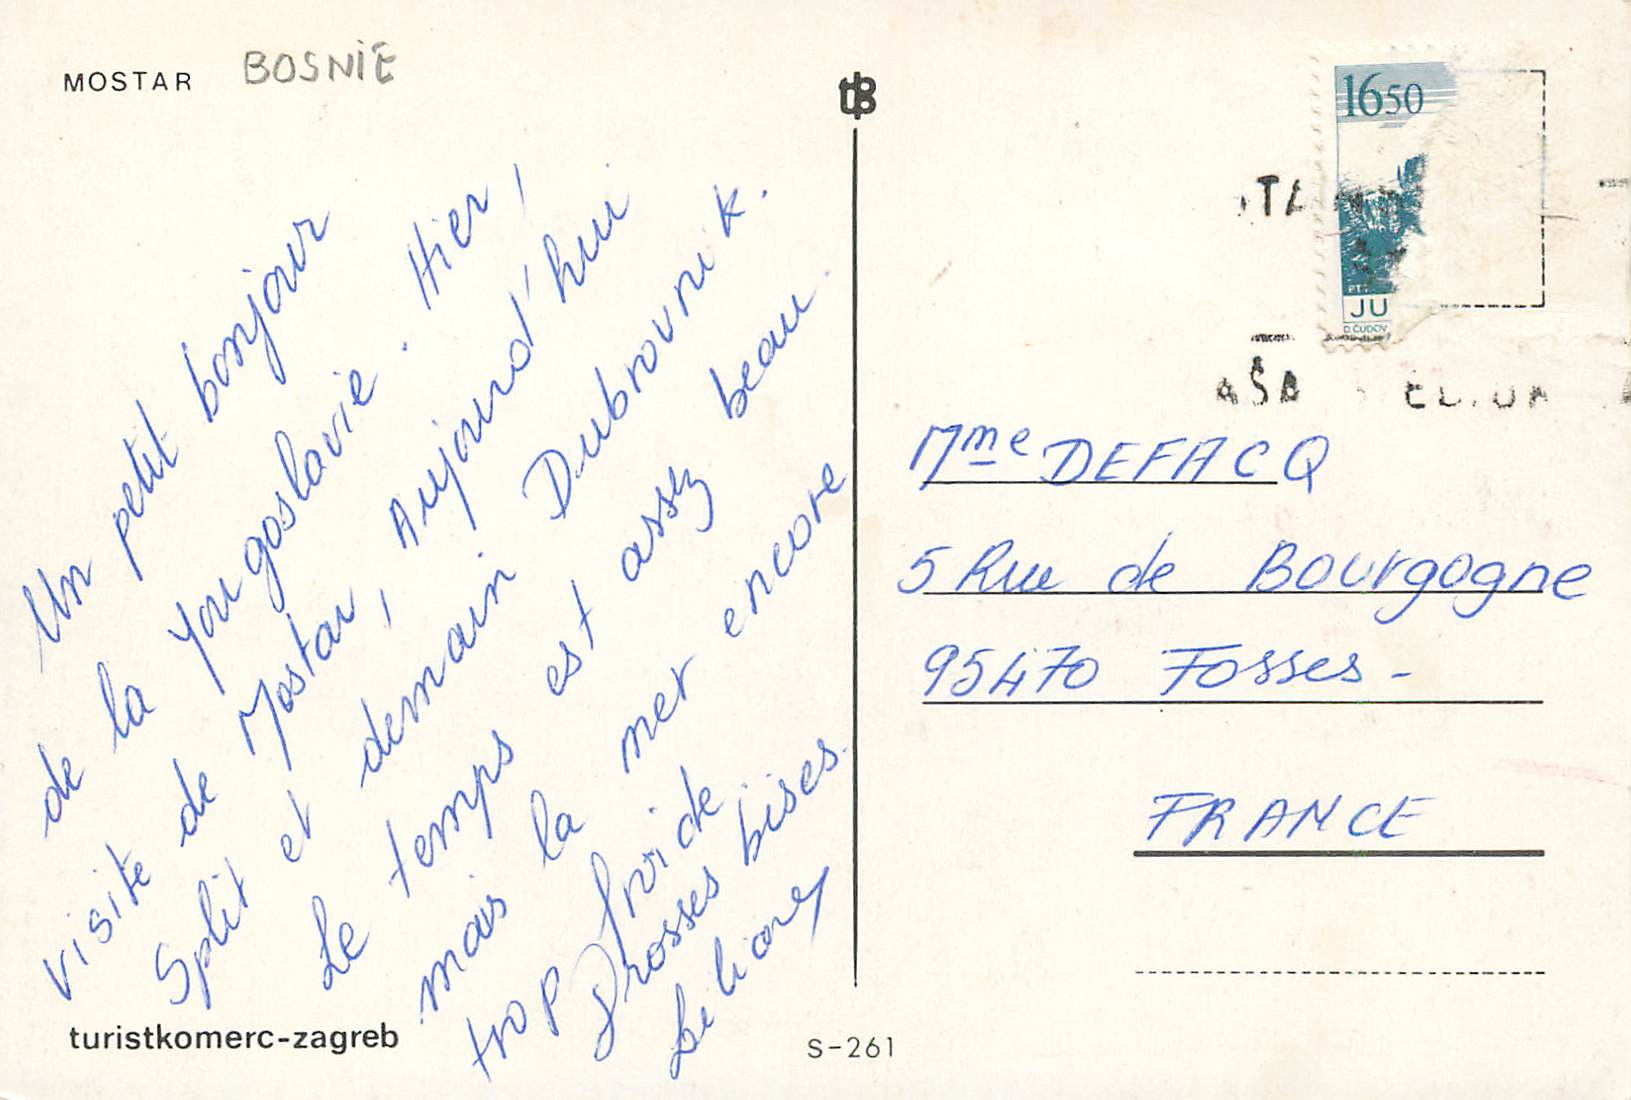 MOSTAR BOSNIE
Un petit bonjour
de la Yougoslavie. Hier,
visite de Mostar, Aujourd'hui
Split et demain Dubrovnik.
Le temps est assez beau.
mais la mer encore
trop froide
Grosses bises.
turistkomerc-zagreb
S-261
1650
PTT
JU
D. ČUDOV
Mme DEFACQ
5 Rue de Bourgogne
95470 Fosses -
FRANCE